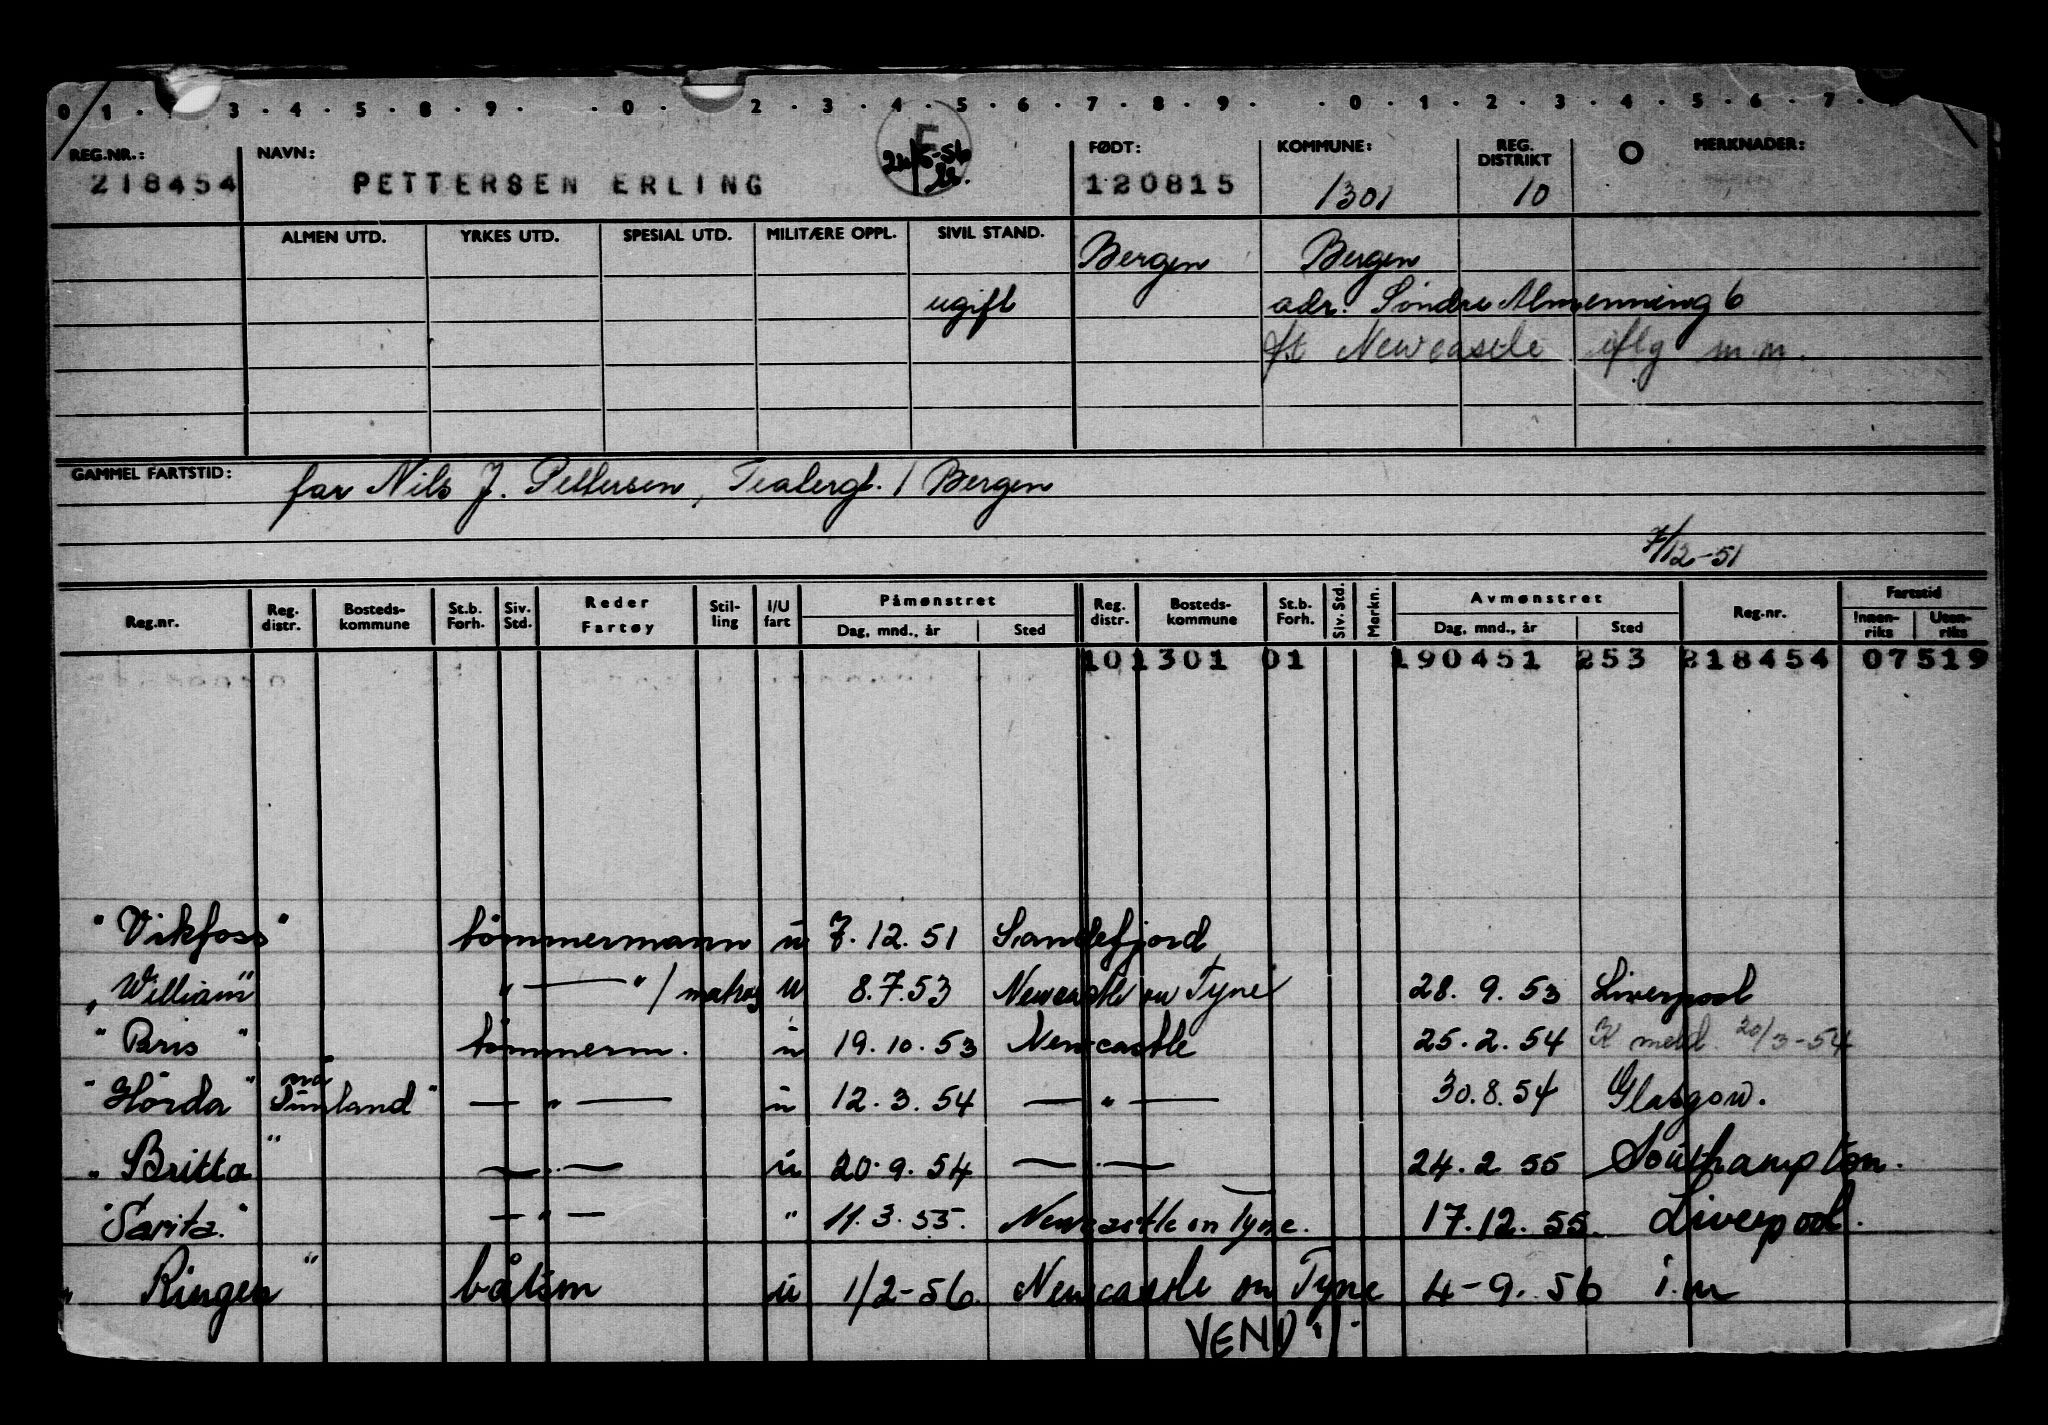 0 1 . . 3 . 4 . 5 . 8 . 9 . . 0 . 2 . 3 . 4 . 5 . 6 . 7 . 8 . 9 . . 0 . 1 . 2 . 3 . 4 . 5 . 6 . 7 .
REG.NR.: NAVN: F FØDT: KOMMUNE: REG. DISTRIKT O MERKNADER:
218454 PETTERSEN ERLING 5-56 120815 1301 10
ALMEN UTD. YRKES UTD. SPESIAL UTD. MILITÆRE OPPL. SIVIL STAND. Bergen Bergen
ugift adr. Søndre Almenning 6
ft Newcastle iflg m.m.
GAMMEL FARTSTID: far Nils J. Pettersen, Teatergt. 1 Bergen
7/12-51
Reg.nr. Reg. distr. Bosteds- kommune St.b. Forh. Siv. Std. Reder Fartøy Stil- ling I/U fart Påmønstret Dag, mnd., år Sted Reg. distr. Bosteds- kommune St.b. Forh. Siv. Std. Merkn. Avmønstret Dag, mnd., år Sted Reg.nr. Fartstid Innen- riks Uten- riks
10 1301 01 190451 253 218454 07519
"Vikfoss" tømmermann u 7.12.51 Sandefjord
"William" — " — / matros u 8.7.53 Newcastle on Tyne 28.9.53 Liverpool
"Bris" tømmerm. u 19.10.53 Newcastle 25.2.54 K meld. 20/3-54
"Hörda" nå "Sunland" — " — u 12.3.54 — " — 30.8.54 Glasgow.
"Britta" — " — u 20.9.54 — " — 24.2 55 Southampton.
"Sarita" — " — " 11.3.55. Newcastle on Tyne. 17.12.55. Liverpool.
"Ringen" båtsm u 1/2-56. Newcastle on Tyne 4-9.56 i.m
VEND